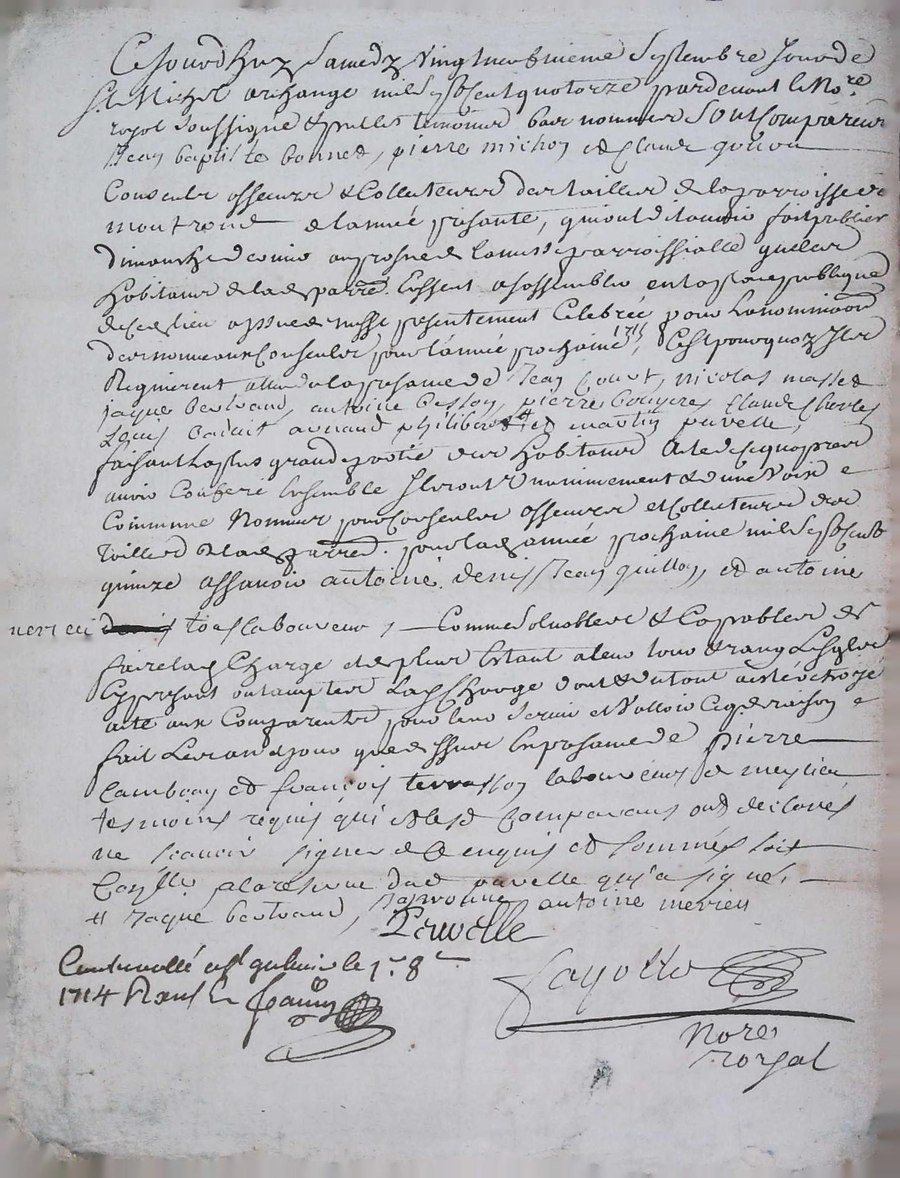 Cejourdhuy Samedy vingtneufvieme Septembre Jour de
St Michel archange mil sept cent quatorze pardevant le Nore
royal soussigne & presents les temoins bas nommes sont compareus
Jean baptiste bonnet, pierre michon et Claude
Consculs asseeurs & Collecteurs des tailles de la parroisse de
montrond de lannee presante, qui ont dit avoir fait publier
dimanche dernier au prosne de la messe parroissialle que les
habitans de lad parre. sassent a sassembler en la place publique
de ce lieu a lissue de messe presentement Celebrée pour la nominaon
des nouveaux Consculs pour lannée prochaine 1715, Cest pourquoy Ils
Requierent attandu la presance de Jean Court, nicolas masset
jaque bertrand, antoine besson, pierre bruyere Claude Charles
Louis arnaud philibert # et martin pavelle,
faisant la plus grande partie des habitans Acte de ce quapres
avoir Conferé Ensemble Ils ont unanimement & dune voix
Commune Nommes pour Consculs asseeurs et Collecteurs des
tailles de lad parre. pour lad année prochaine mil sept cent
quinze assavoir antoine denis Jean guillon, et antoine
merieu tous laboureurs, Comme solvables & Capables de
faire lad Charge et de plus Estant a leur tour & rang
Exercant lad Charge dont & du tout a esté octroyé
acte aux Comparents pour leur servir et valloir Ce que de raison
fait Les an & jour que dessus En presance de pierre
Cambray et françois terrasson laboureurs de meylieu
tesmoins requis qui et lesd Comparans ont declarés
ne scavoir signer de ce enquis et sommes soit
Con lle a la reserve dud pavelle qui a signé.
# Jaque bertrand, antoine merieu
Pavelle
Controollé a st galmier le 1er 8re
1714 Receu
Nore
royal